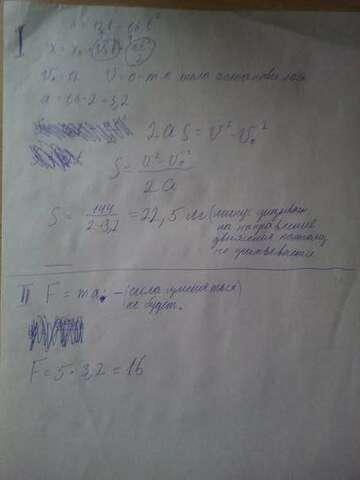 I
x = 12t - 1,6t²
x = x₀ + v₀t + at²/2
v₀ = 12 V = 0 - т.к тело остановилось
a = 1,6·2 = 3,2
2aS = V² - V₀²
S = V² - V₀² / 2a
S = 144 / 2·3,2 = 22,5 м (минус
на направление
движения поэтому
не учитывается
II F = ma; - (сила
не будет.
F = 5 · 3,2 = 16